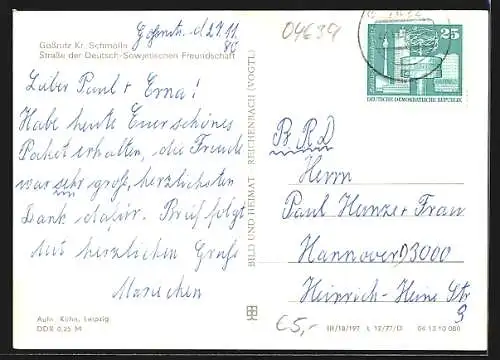 Gößnitz Kr. Schmölln
Straße der Deutsch-Sowjetischen Freundschaft
Gößnitz, d. 27.11.
80
Lieber Paul + Erna!
Habe heute Euer schönes
Packet erhalten, die Freude
war sehr groß, herzlichsten
Dank dafür. Brief folgt
Mit herzlichen Gruß
Mariechen
Auhn. Kühn, Leipzig
DDR 0,25 M
BILD UND HEIMAT REICHENBACH (VOGTL)
04639
25
DEUTSCHE DEMOKRATISCHE REPUBLIK
BRD
Herrn
Paul Heinze + Frau
Hannover 3000
Heinrich-Heine Str
9
€5,-
III/18/197 L 12/77/D 04 13 10 080